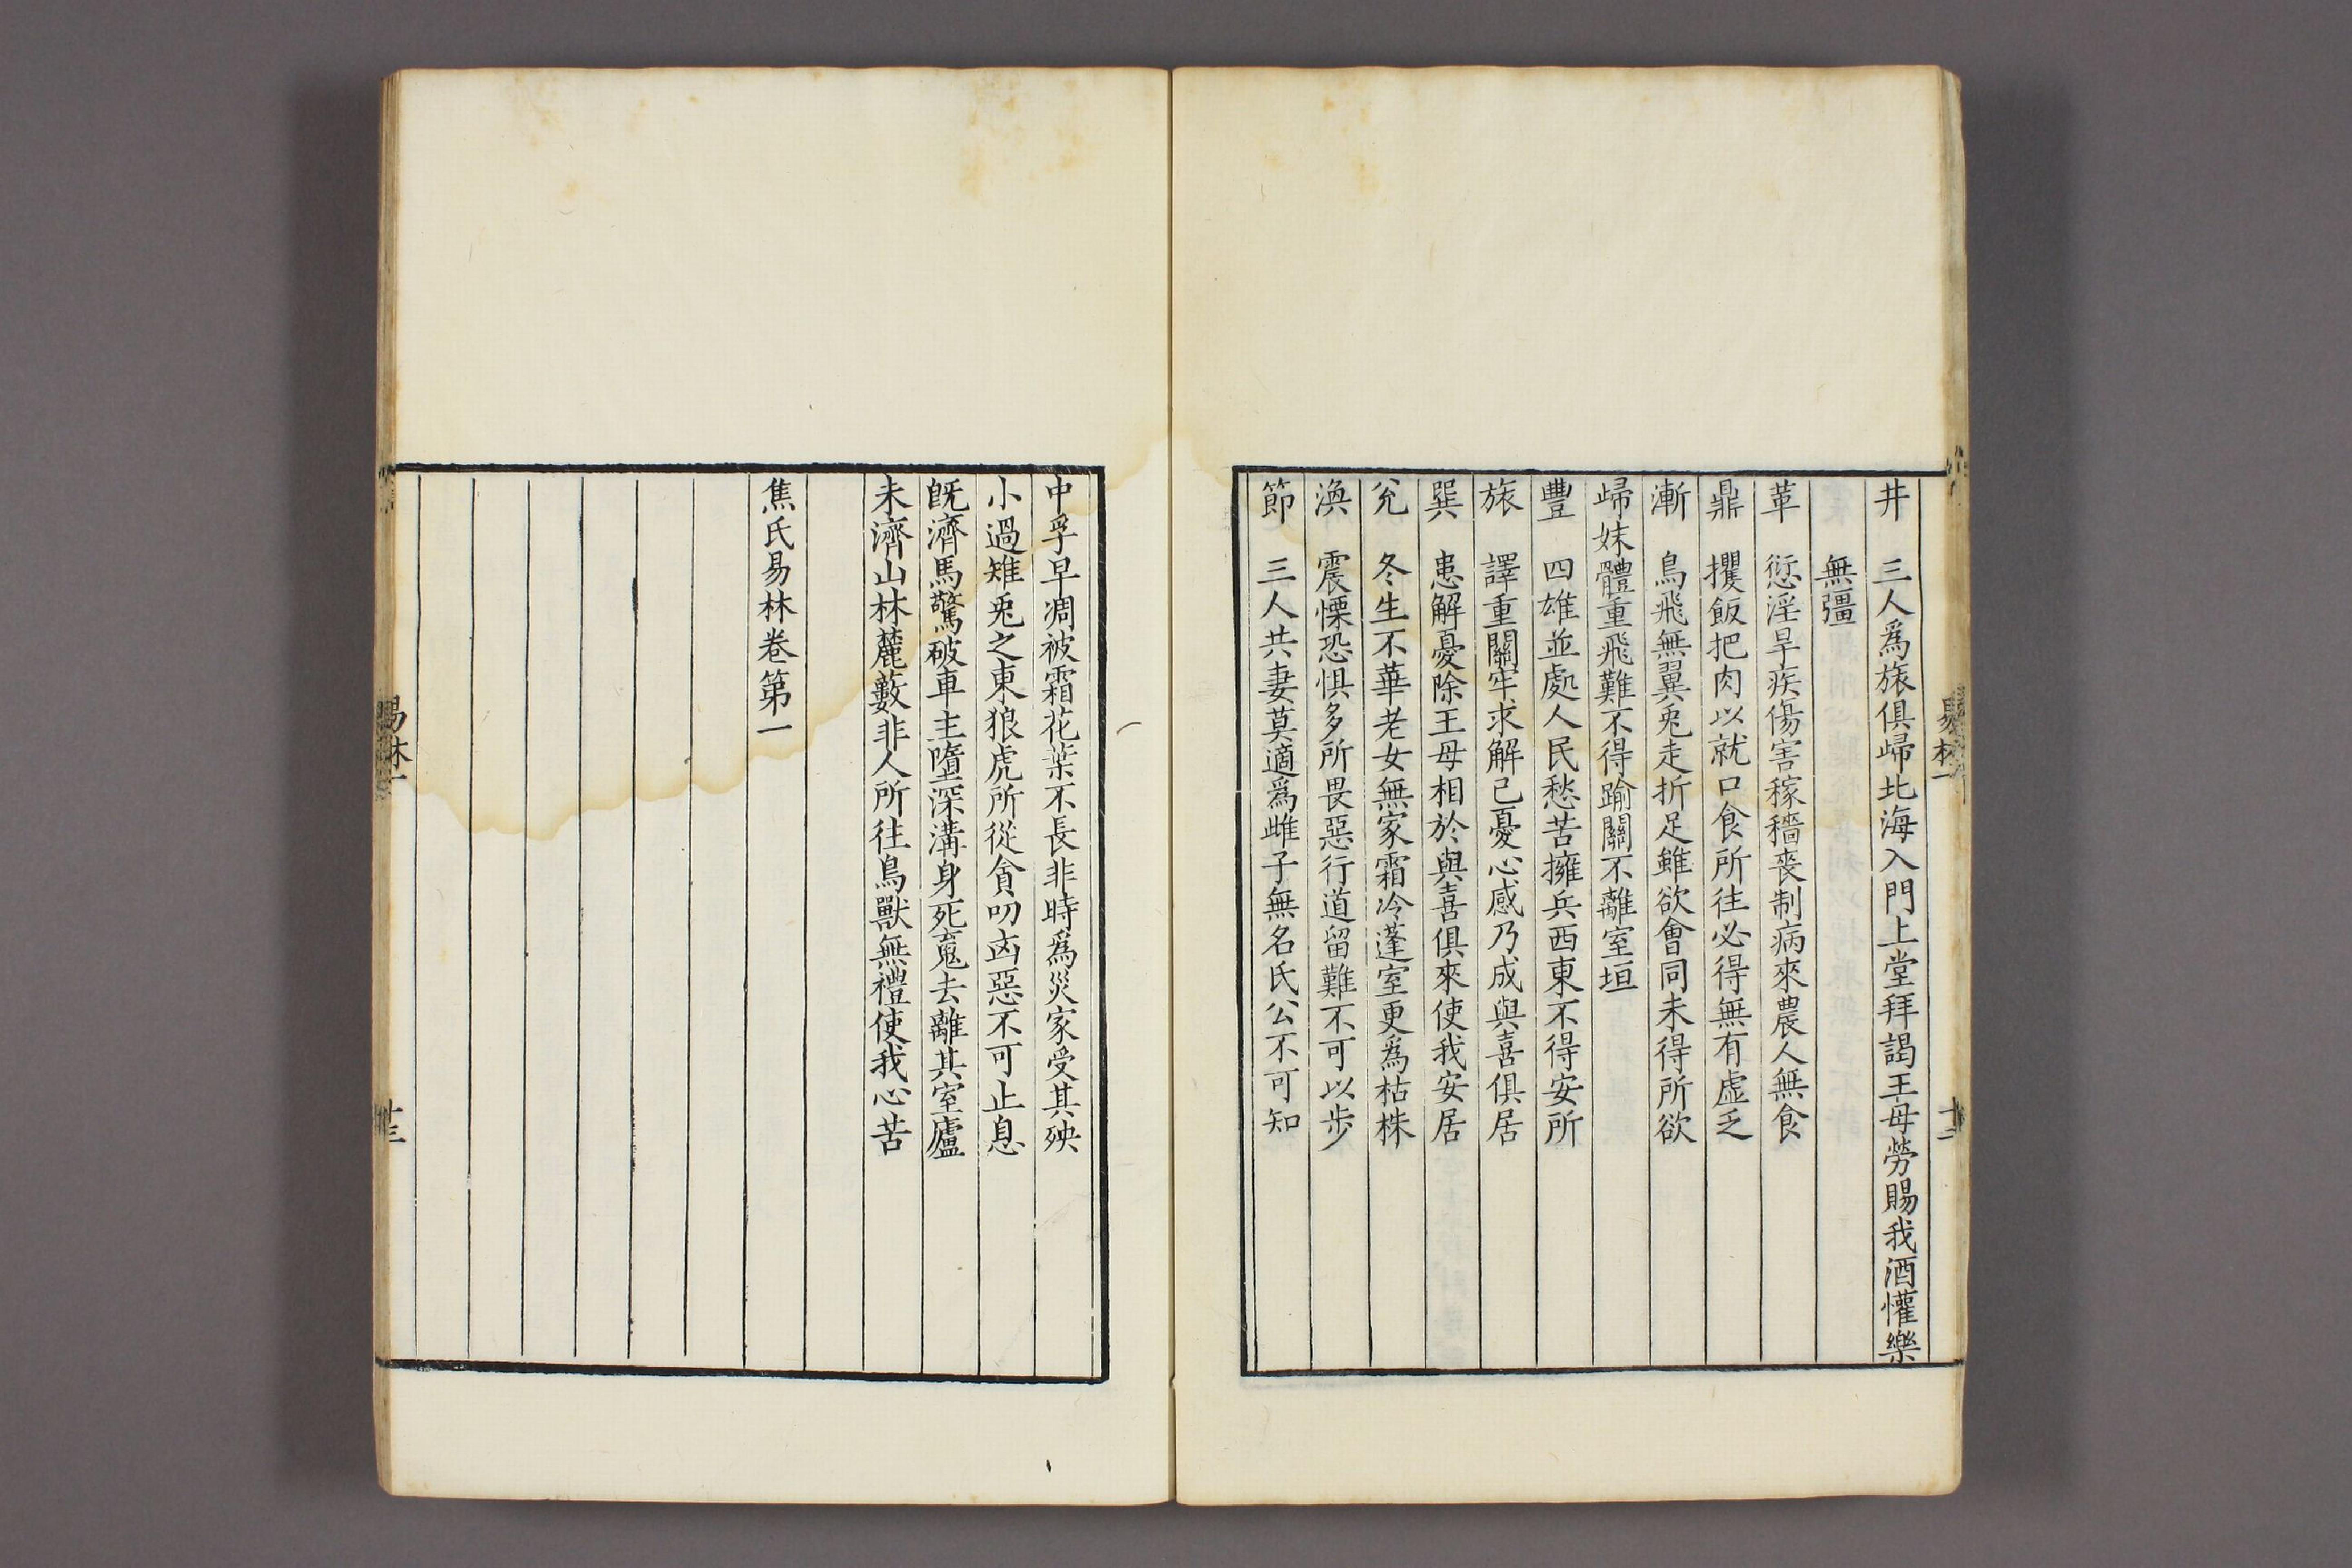 井　三人爲旅俱歸北海入門上堂拜謁王母勞賜我酒懽樂
無彊
革　愆淫旱疾傷害稼穡喪制病來農人無食
鼎　攫飯把肉以就口食所往必得無有虛乏
漸　鳥飛無翼兎走折足雖欲會同未得所欲
歸妹體重飛難不得踰關不離室垣
豐　四雄並處人民愁苦擁兵西東不得安所
旅　譯重關牢求解已憂心感乃成與喜俱居
巽　患解憂除王母相於與喜俱來使我安居
兊　冬生不華老女無家霜冷蓬室更爲枯株
渙　震慄恐惧多所畏惡行道留難不可以步
節　三人共妻莫適爲雌子無名氏公不可知
中孚早凋被霜花葉不長非時爲災家受其殃
小過雉兎之東狼虎所從貪叨凶惡不可止息
旣濟馬驚破車主墮深溝身死䰟去離其室廬
未濟山林麓藪非人所往鳥獸無禮使我心苦
焦氏易林卷第一
易林一